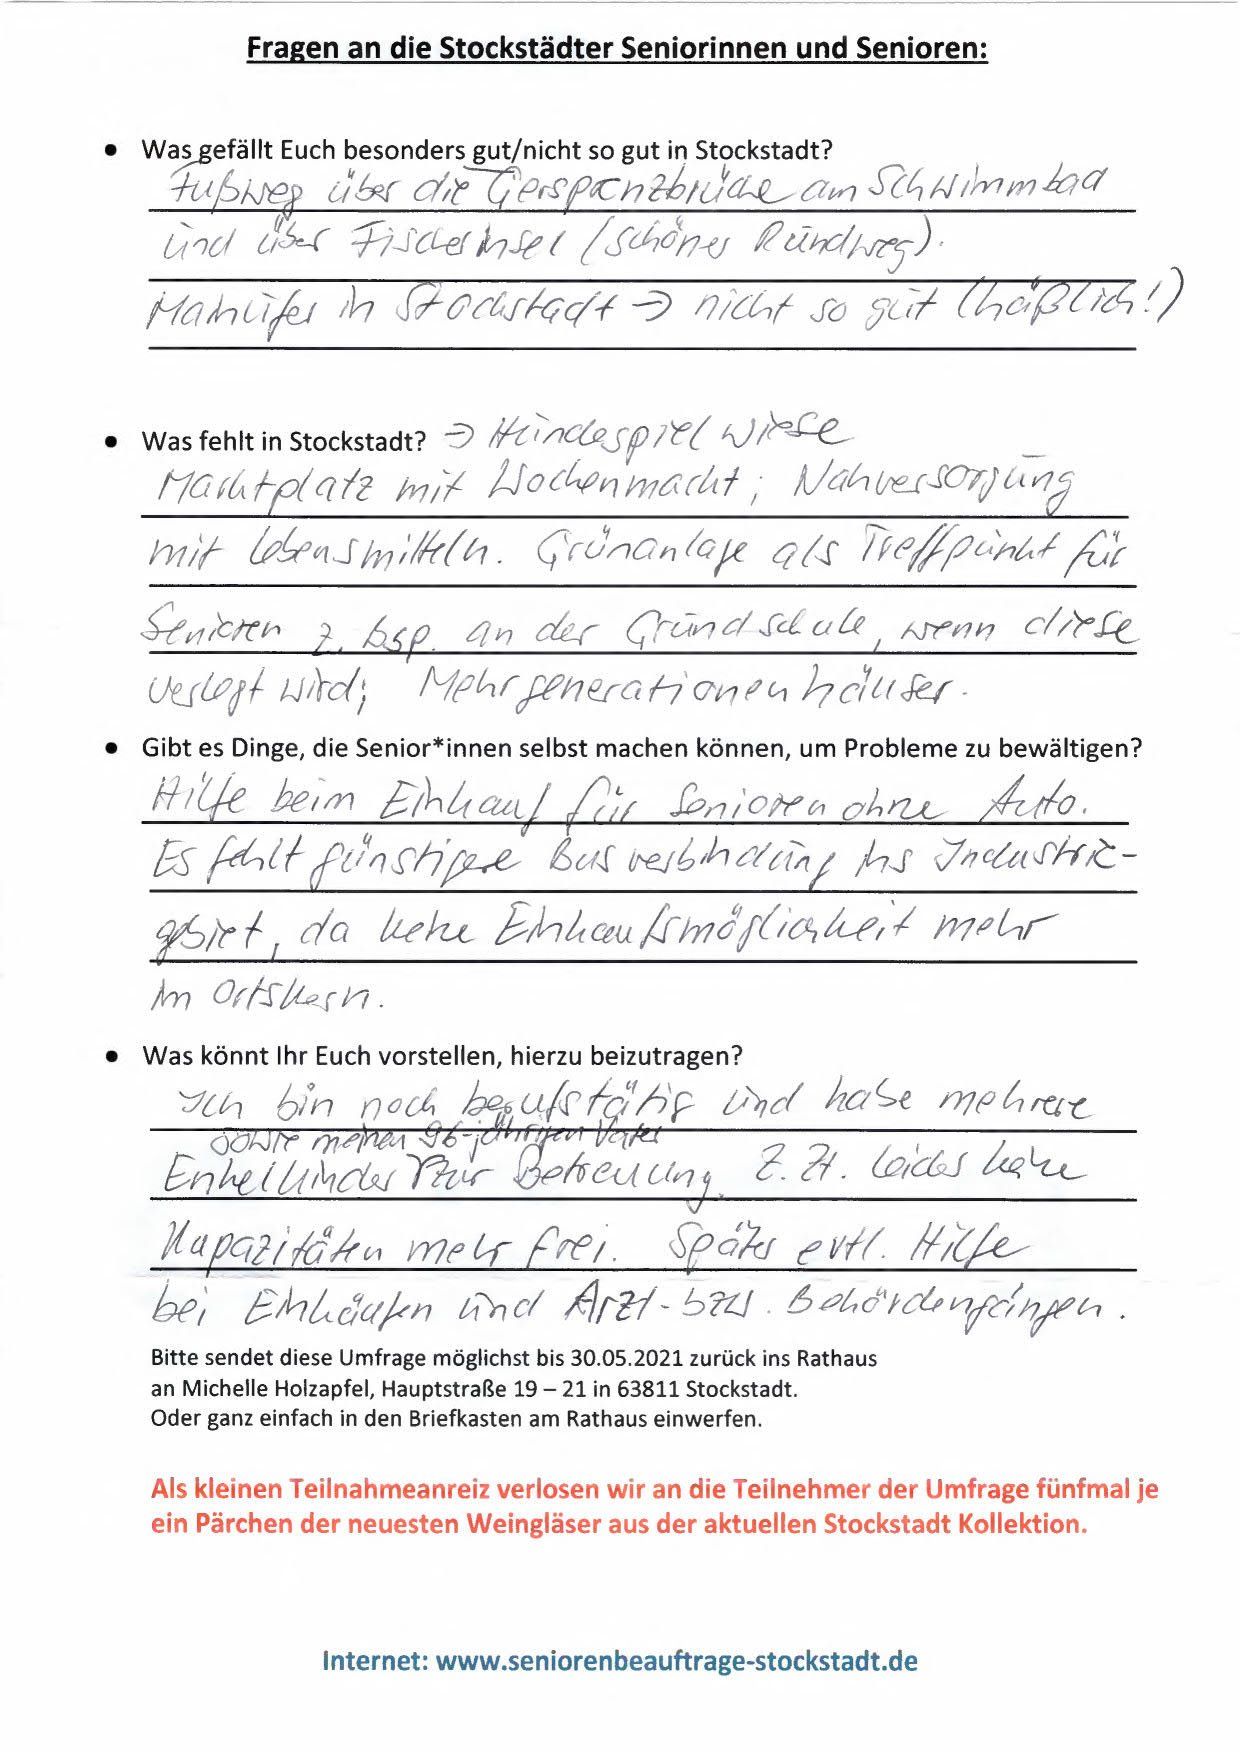 Fragen an die Stockstädter Seniorinnen und Senioren:
• Was gefällt Euch besonders gut/nicht so gut in Stockstadt?
Fußweg über die Gersprenzbrücke am Schwimmbad
und über Fischerinsel (schöner Rundweg).
Mainufer in Stockstadt → nicht so gut (häßlich!)
• Was fehlt in Stockstadt? → Hundespielwiese
Marktplatz mit Wochenmarkt; Nahversorgung
mit Lebensmitteln. Grünanlage als Treffpunkt für
Senioren z. bsp. an der Grundschule, wenn diese
verlegt wird; Mehrgenerationenhäuser.
• Gibt es Dinge, die Senior*innen selbst machen können, um Probleme zu bewältigen?
Hilfe beim Einkauf für Senioren ohne Auto.
Es fehlt günstigere Busverbindung ins Industrie-
gebiet, da keine Einkaufsmöglichkeit mehr
im Ortskern.
• Was könnt Ihr Euch vorstellen, hierzu beizutragen?
Ich bin noch berufstätig und habe mehrere
sowie meinen 96-jährigen Vater
Enkelkinder zur Betreuung. Z. Zt. leider keine
Kapazitäten mehr frei. Später evtl. Hilfe
bei Einkäufen und Arzt- bzw. Behördengängen.
Bitte sendet diese Umfrage möglichst bis 30.05.2021 zurück ins Rathaus
an Michelle Holzapfel, Hauptstraße 19 – 21 in 63811 Stockstadt.
Oder ganz einfach in den Briefkasten am Rathaus einwerfen.
Als kleinen Teilnahmeanreiz verlosen wir an die Teilnehmer der Umfrage fünfmal je
ein Pärchen der neuesten Weingläser aus der aktuellen Stockstadt Kollektion.
Internet: www.seniorenbeauftrage-stockstadt.de